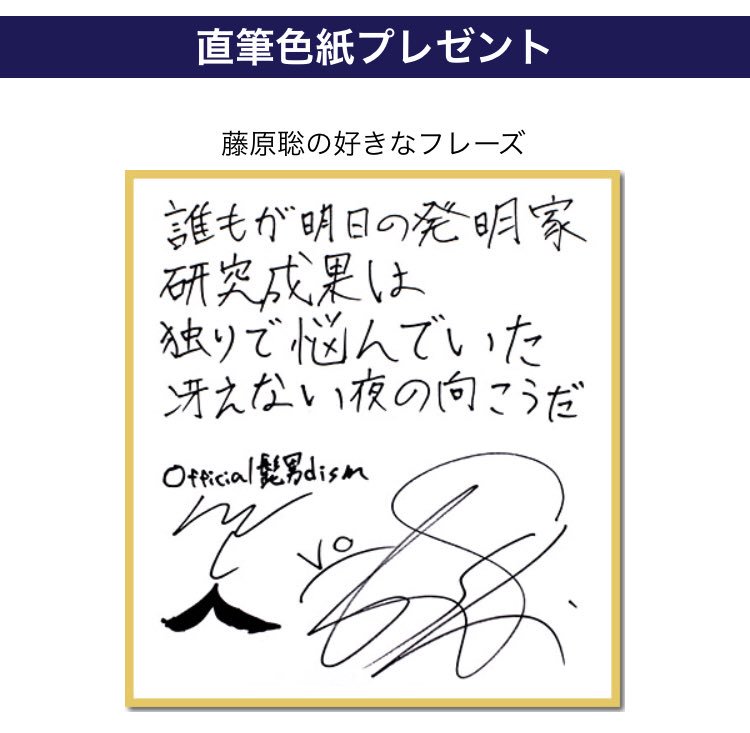 直筆色紙プレゼント
藤原聡の好きなフレーズ
誰もが明日の発明家
研究成果は
独りで悩んでいた
冴えない夜の向こうだ
Official髭男dism
vo